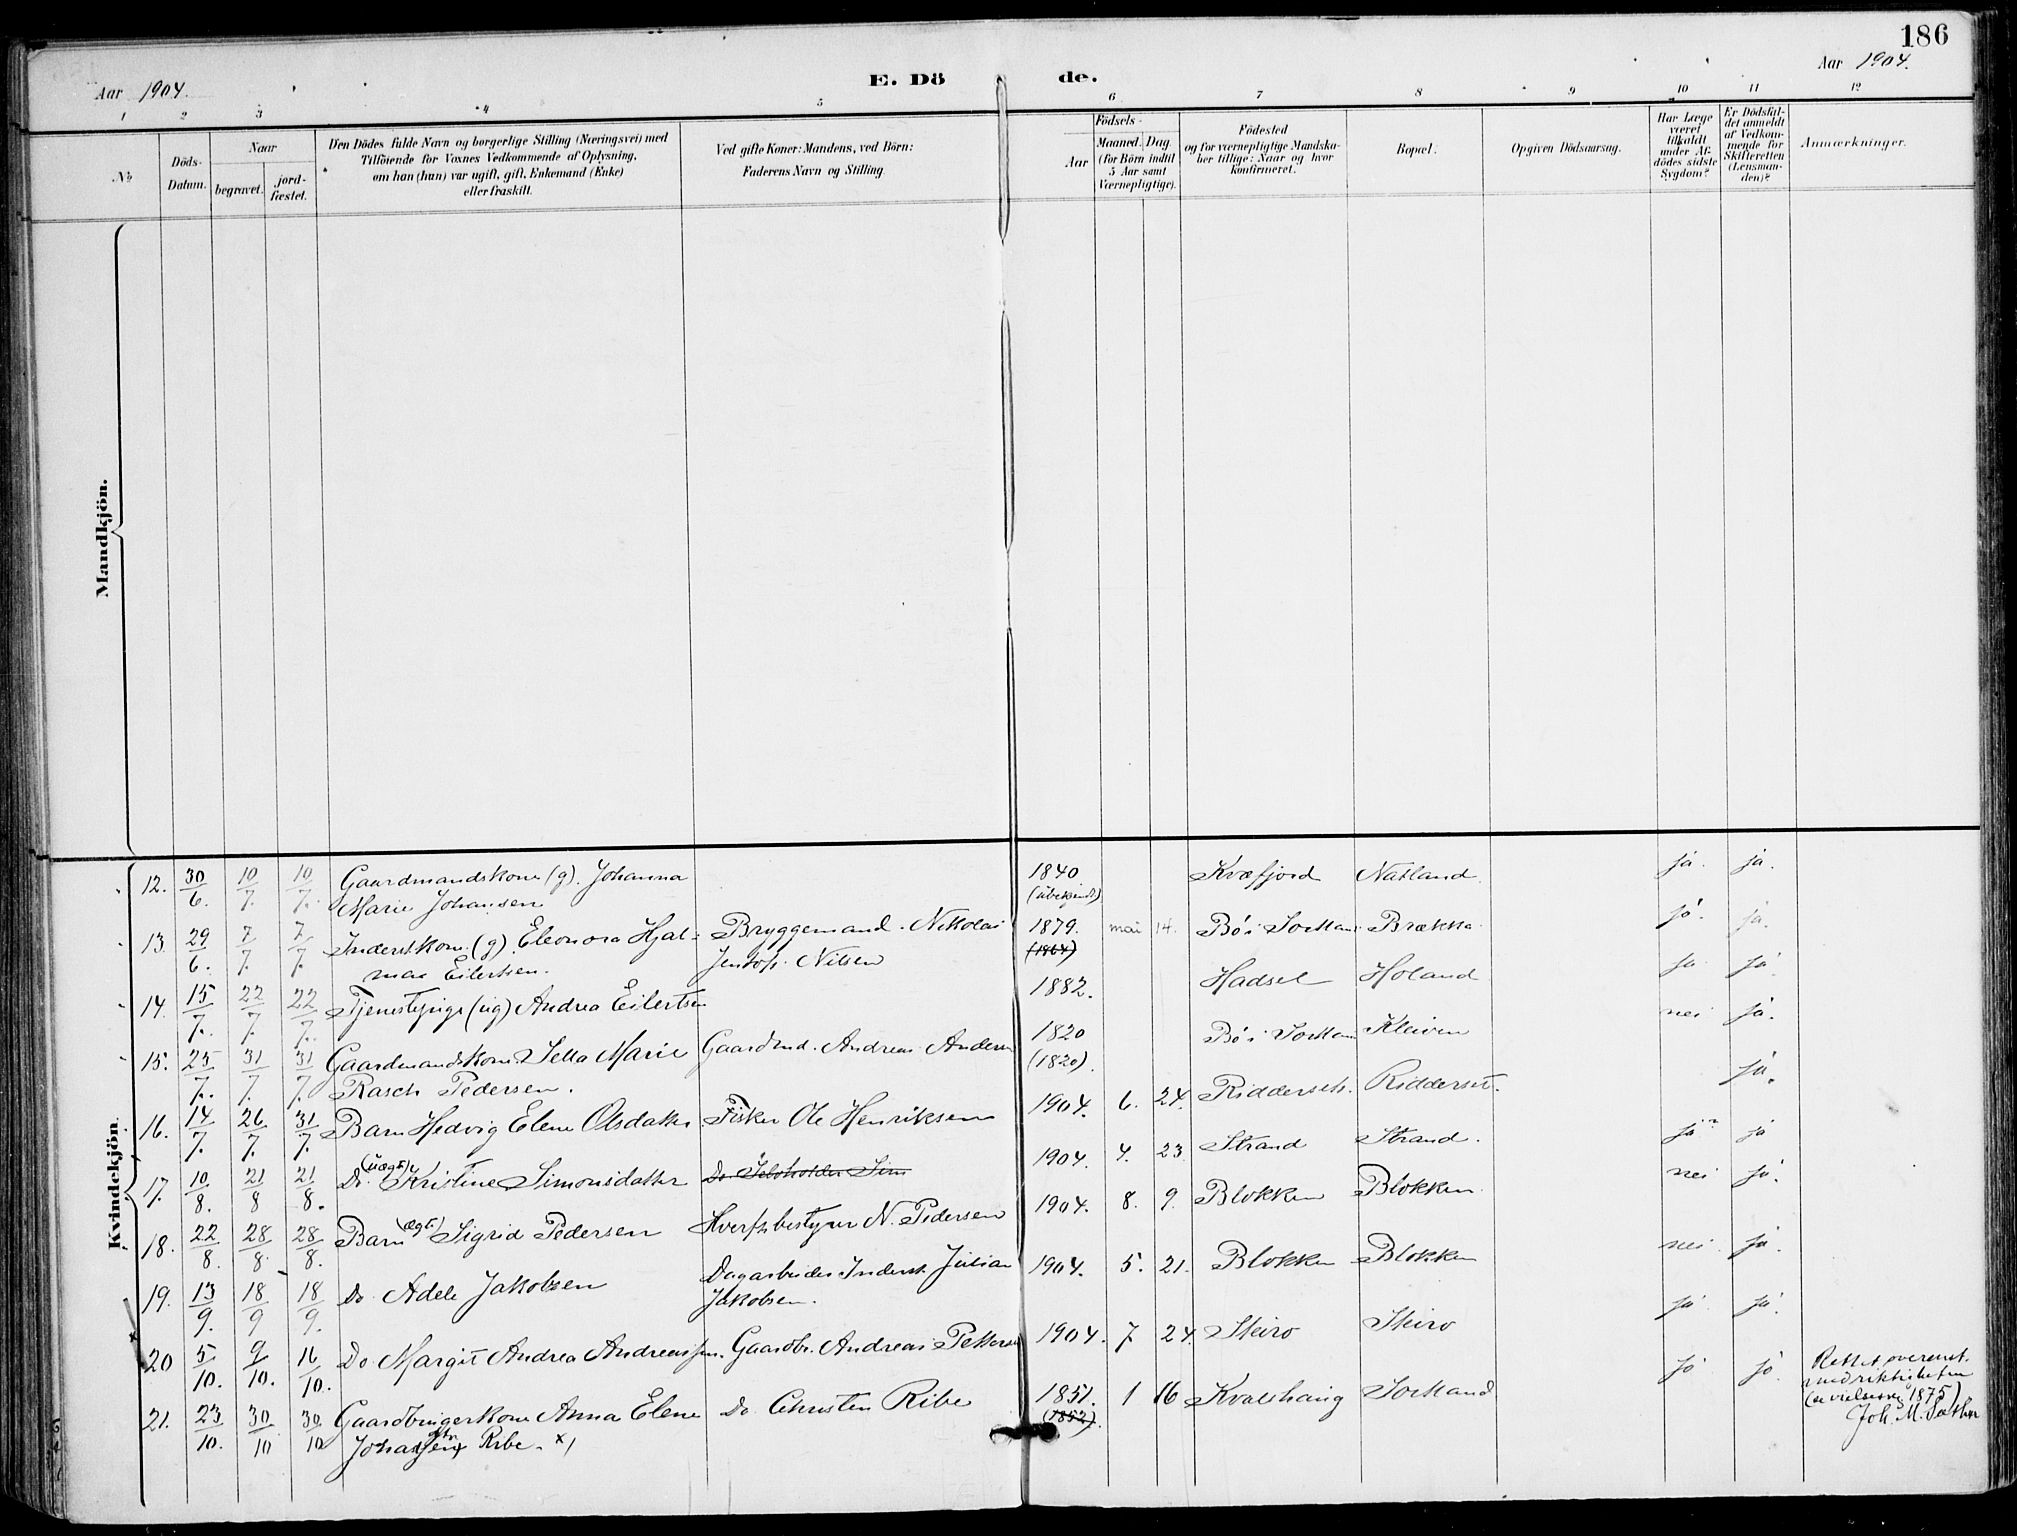 186
Aar 1904.
E. Dö de.
Aar 1904.
1 2 3 4 5 6 7 8 9 10 11 12
No
Döds-
Datum.
Naar
begravet.
jord-
fæstet.
Den Dödes fulde Navn og borgerlige Stilling (Næringsvei) med
Tilföiende for Voxnes Vedkommende af Oplysning,
om han (hun) var ugift, gift, Enkemand (Enke)
eller fraskilt.
Ved gifte Koner: Mandens, ved Börn:
Faderens Navn og Stilling.
Födsels-
Aar
Maaned.
Dag.
(for Börn indtil
5 Aar samt
Værnepligtige).
Födested
og for værnepligtige Mandska-
ber tillige: Naar og hvor
konfirmeret.
Bopæl.
Opgiven Dödsaarsag.
Har Læge
været
tilkaldt
under Af-
dödes sidste
Sygdom?
Er Dödsfal-
det anmeldt
af Vedkom-
mende for
Skifteretten
(Lensman-
den)?
Anmærkninger.
Mandkjön.
Kvindekjön.
12. 30/6. 10/7. 10/7. Gaardmandskone (g). Johanna 1840 Kvæfjord Natland ja. ja.
Marie Johansen (ubekjendt)
13. 29/6. 7/7. 7/7. Inderstkone (g). Eleonora Hjal- Bryggemand. Nikolai 1879. mai 14. Bø i Sortland Brækka ja. ja.
mar Eilertsen. Jentof. Nilsen (1864)
14. 15/7. 22/7. 22/7. Tjenestepige (ug) Andrea Eilertsen 1882. Hadsel Holand ja ja
15. 25/7. 31/7. 31/7. Gaardmandskone Sella Marie Gaardmd. Andreas Andersen 1820 Bø i Sortland Kleiven nei ja.
Rasch Pedersen. (1820).
16. 14/7. 26/7. 31/7. Barn Hedvig Elene Olsdatter Fisker Ole Henriksen 1904. 6. 24. Ridderseth. Ridderset. ja.
17. 10/8. 21/8 21/8. Do. (uægte) Kristine Simonsdatter Do Selvholder Sim 1904. 4. 23 Strand Strand. ja ja
18. 22/8. 28/8. 28/8. Barn (ægte) Sigrid Pedersen Hverfsbestyrer N. Pedersen 1904. 8. 9. Blokken Blokken nei ja.
19. 13/9. 18/9 18/9. Do Adele Jakobsen Dagarbeider Inderst. Julian 1904. 5. 21. Blokken Blokken nei ja.
Jakobsen.
20 5/10. 9/10. 16/10. Do Margit Andrea Andreassen. Gaardbr. Andreas Pettersen 1904. 7 24. Steiro Steiro ja ja.
21. 23/10. 30/10 30/10 Gaardbrugerkone Anna Elene Do. Christen Ribe 1851. 1 16 Kvalshaug Sortland ja ja.
Johansen dtr Ribe. x) (1852).
Rettet overenst.
med riktigheten
(se vielsesreg 1875)
Joh. M. Sæther